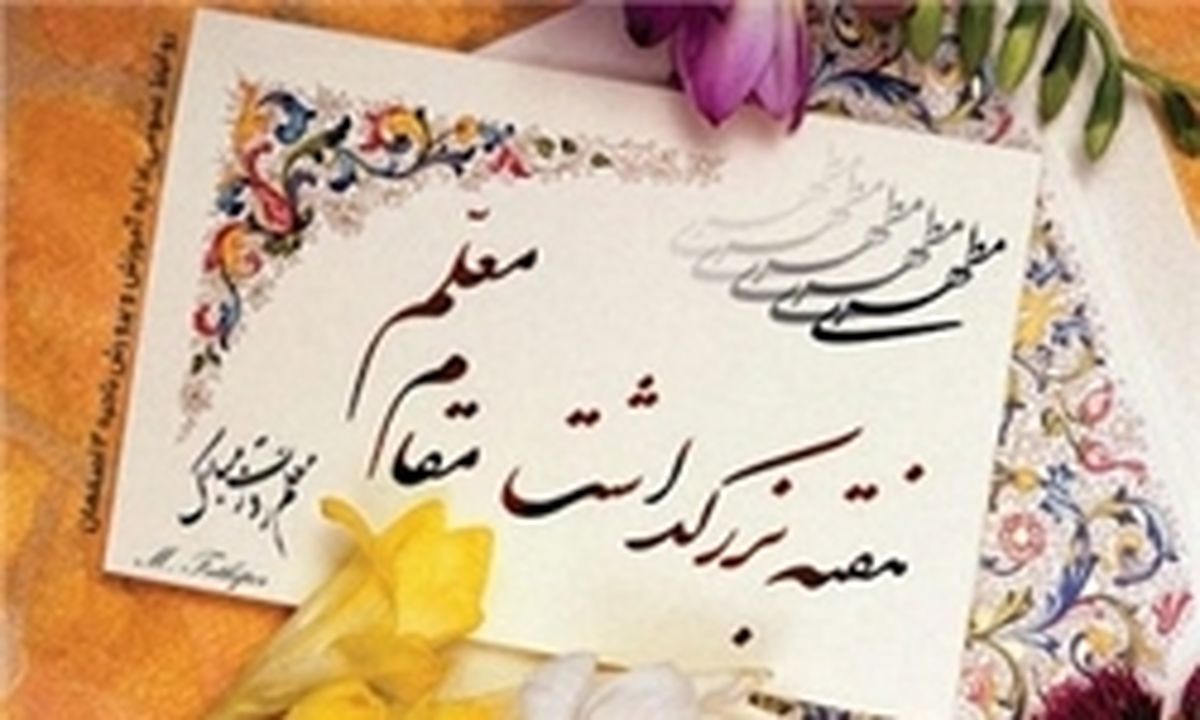 مطهری
مطهری
مطهری
مطهری
مطهری
هفته بزرگداشت
مقام
معلّم
معلم روزت مبارک
روابط عمومی اداره آموزش و پرورش ناحیه ۳ اصفهان